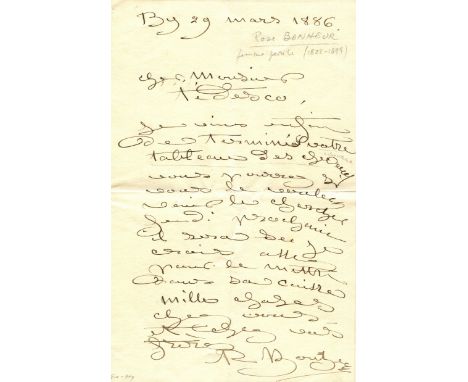 By 29 mars 1886
Rosa BONHEUR
femme peintre (1822-1899)
cher Monsieur
Tédesco,
je viens enfin
de terminé votre
tableau des
vous pouvez si
vous le voulez
venir le chercher
jeudi prochain
il sera sec je
crois assez
pour le mettre
dans sa caisse
mille choses
chez vous
et chez vos
frères
R. Bonheur